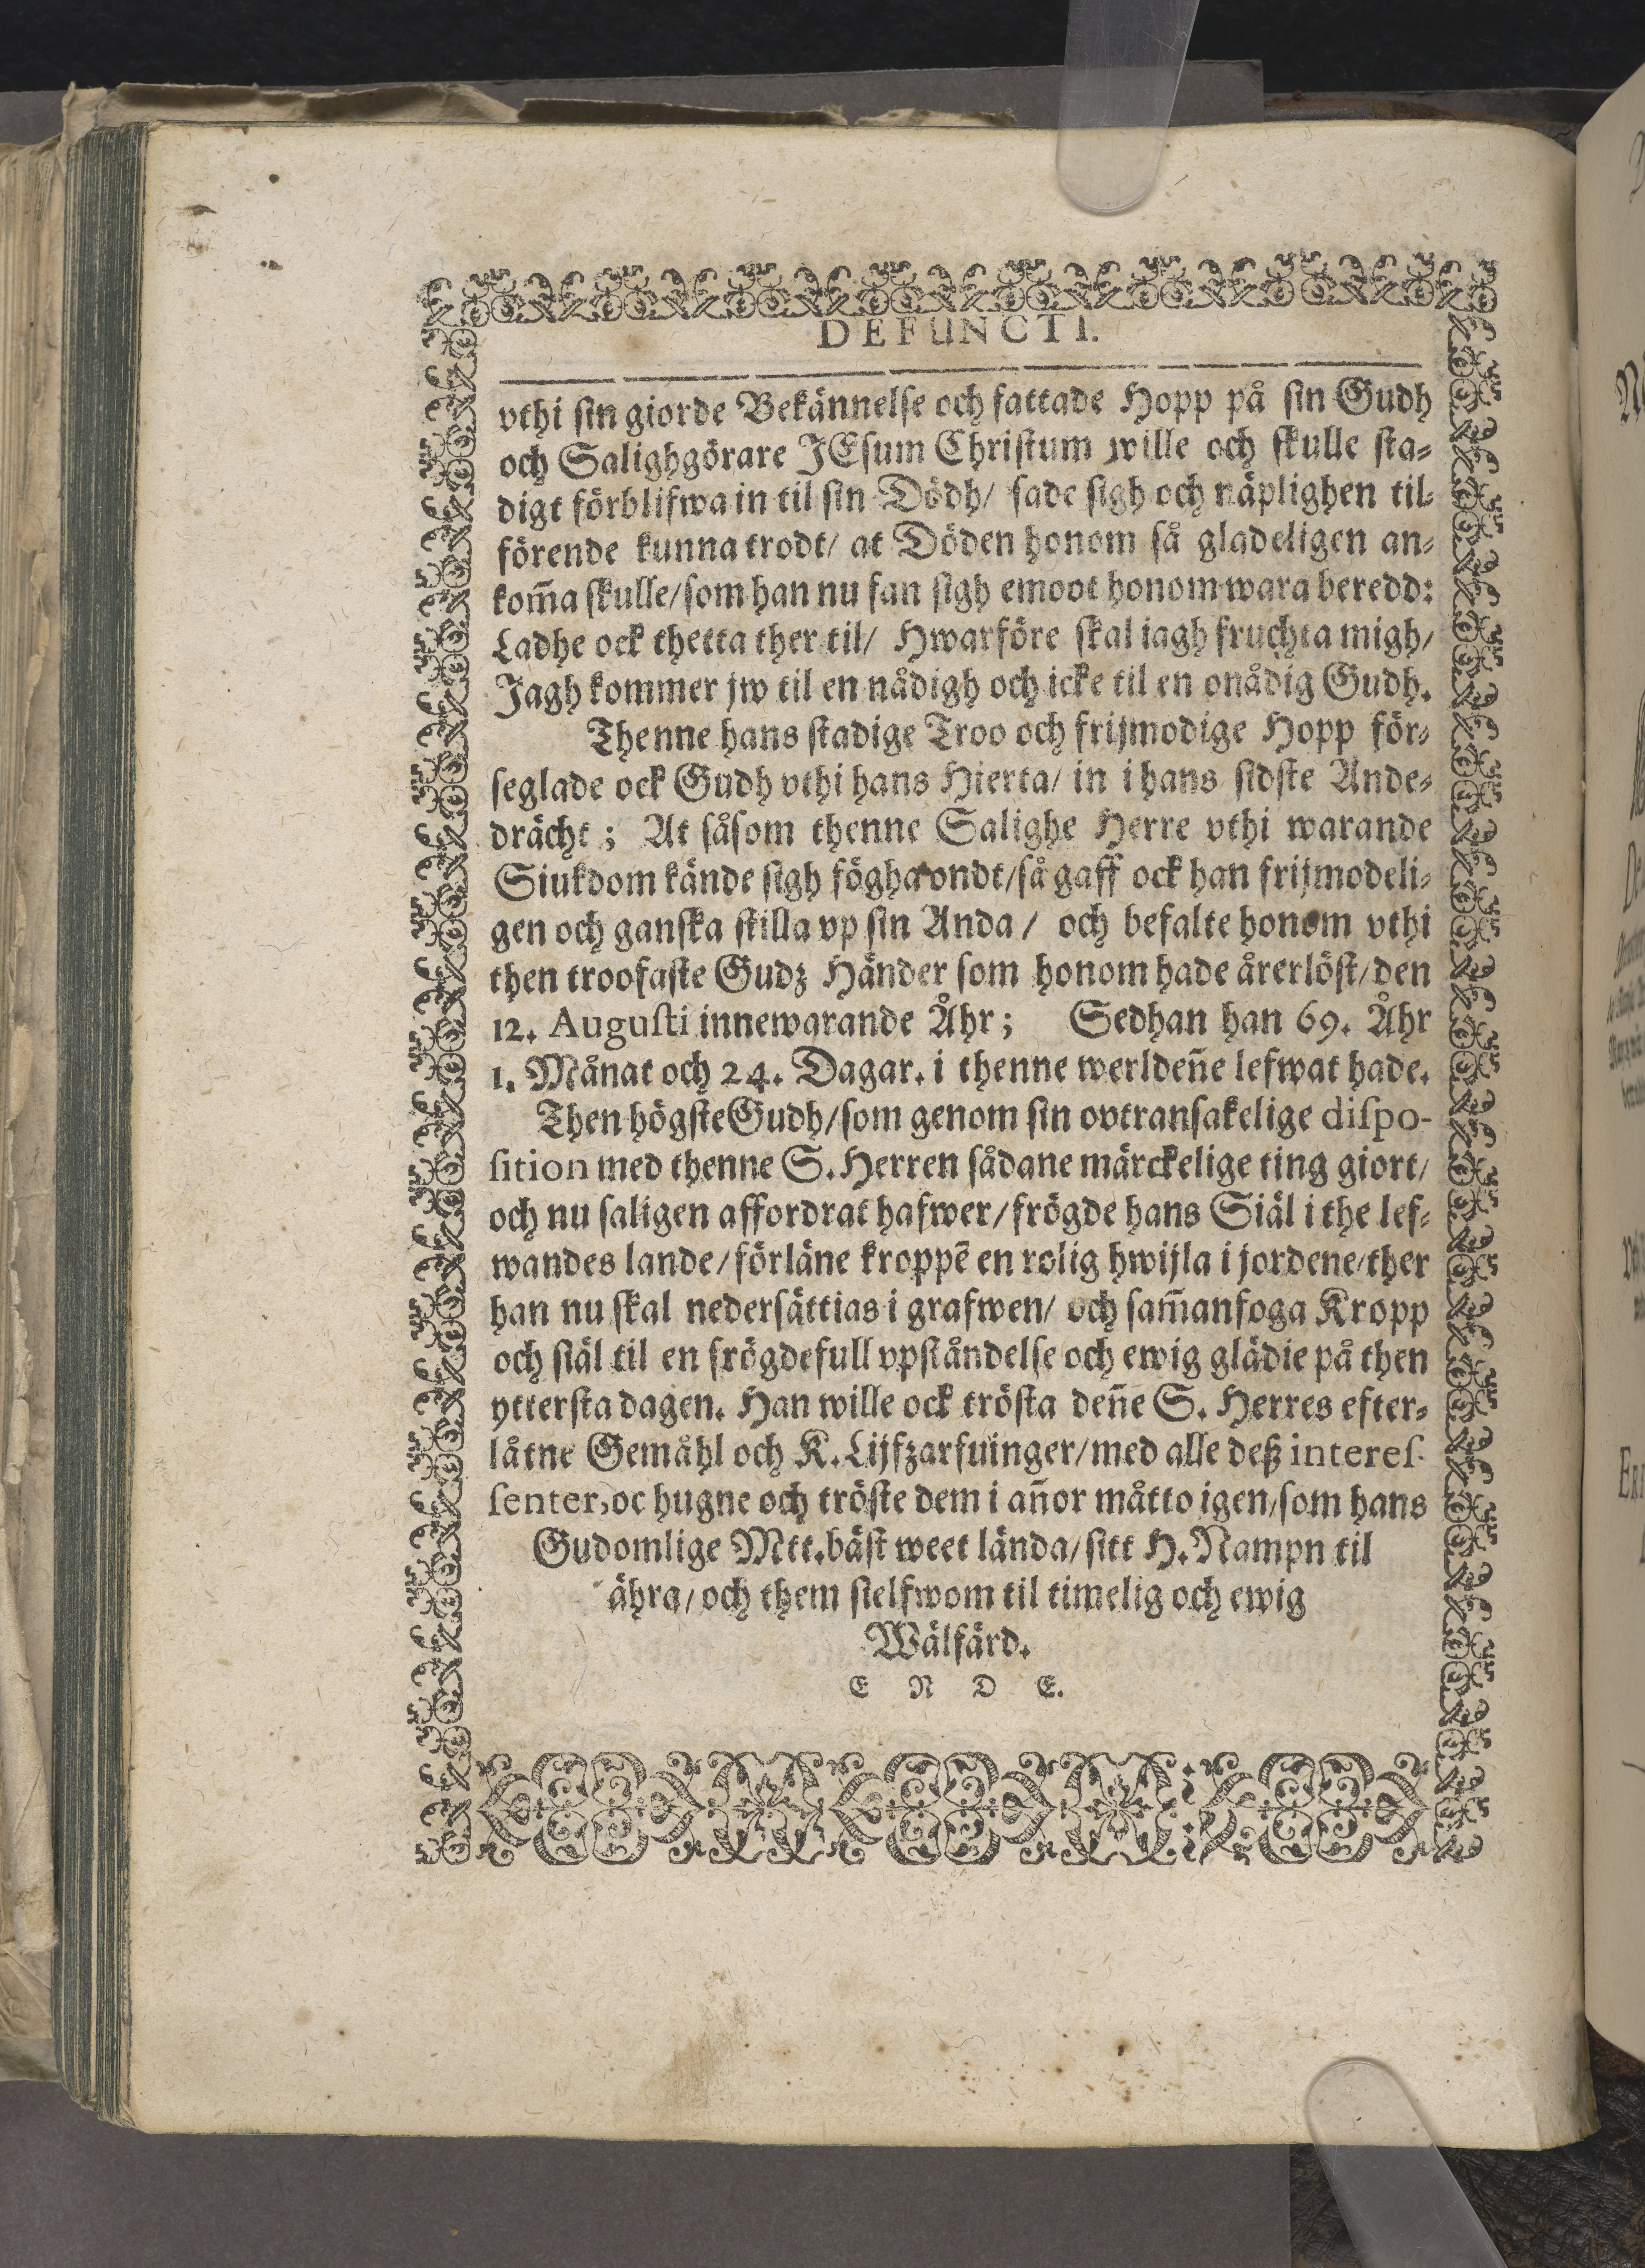 DEFUNCTI.
vthi sin giorde Bekännelse och fattade Hopp på sin Gudh
och Salighgörare JEsum Christum wille och skulle sta⸗
digt förblifwa in til sin Dödh/ sade sigh och näplighen til⸗
förende kunna trodt/ at Döden honom så gladeligen an⸗
kom̃a skulle/ som han nu fan sigh emoot honom wara beredd:
Ladhe ock thetta ther til/ Hwarföre skal iagh fruchta migh/
Jagh kommer jw til en nådigh och icke til en onådig Gudh.
Thenne hans stadige Troo och frijmodige Hopp för⸗
seglade ock Gudh vthi hans Hierta/ in i hans sidste Ande⸗
drächt; At såsom thenne Salighe Herre vthi warande
Siukdom kände sigh fögha ondt/ så gaff ock han frijmodeli⸗
gen och ganska stilla vp sin Anda/ och befalte honom vthi
then troofaste Gudz Händer som honom hade årerlöst/ den
12. Augusti innewarande Åhr; Sedhan han 69. Åhr
1. Månat och 24. Dagar. i thenne werldeñe lefwat hade.
Then högste Gudh/ som genom sin ovtransakelige dispo-
sition med thenne S. Herren sådane märckelige ting giort/
och nu saligen affordrat hafwer/ frögde hans Siäl i the lef⸗
wandes lande/ förläne kroppē en rolig hwijla i jordene/ ther
han nu skal nedersättias i grafwen/ och sam̃anfoga Kropp
och siäl til en frögdefull vpståndelse och ewig glädie på then
yttersta dagen. Han wille ock trösta deñe S. Herres efter⸗
låtne Gemåhl och K. Lijfzarfuinger/ med alle deß interes-
senter, oc hugne och tröste dem i añor måtto igen/ som hans
Gudomlige Mtt. bäst weet lända/ sitt H. Nampn til
ähra/ och them sielfwom til timelig och ewig
Wälfärd.
E N D E.